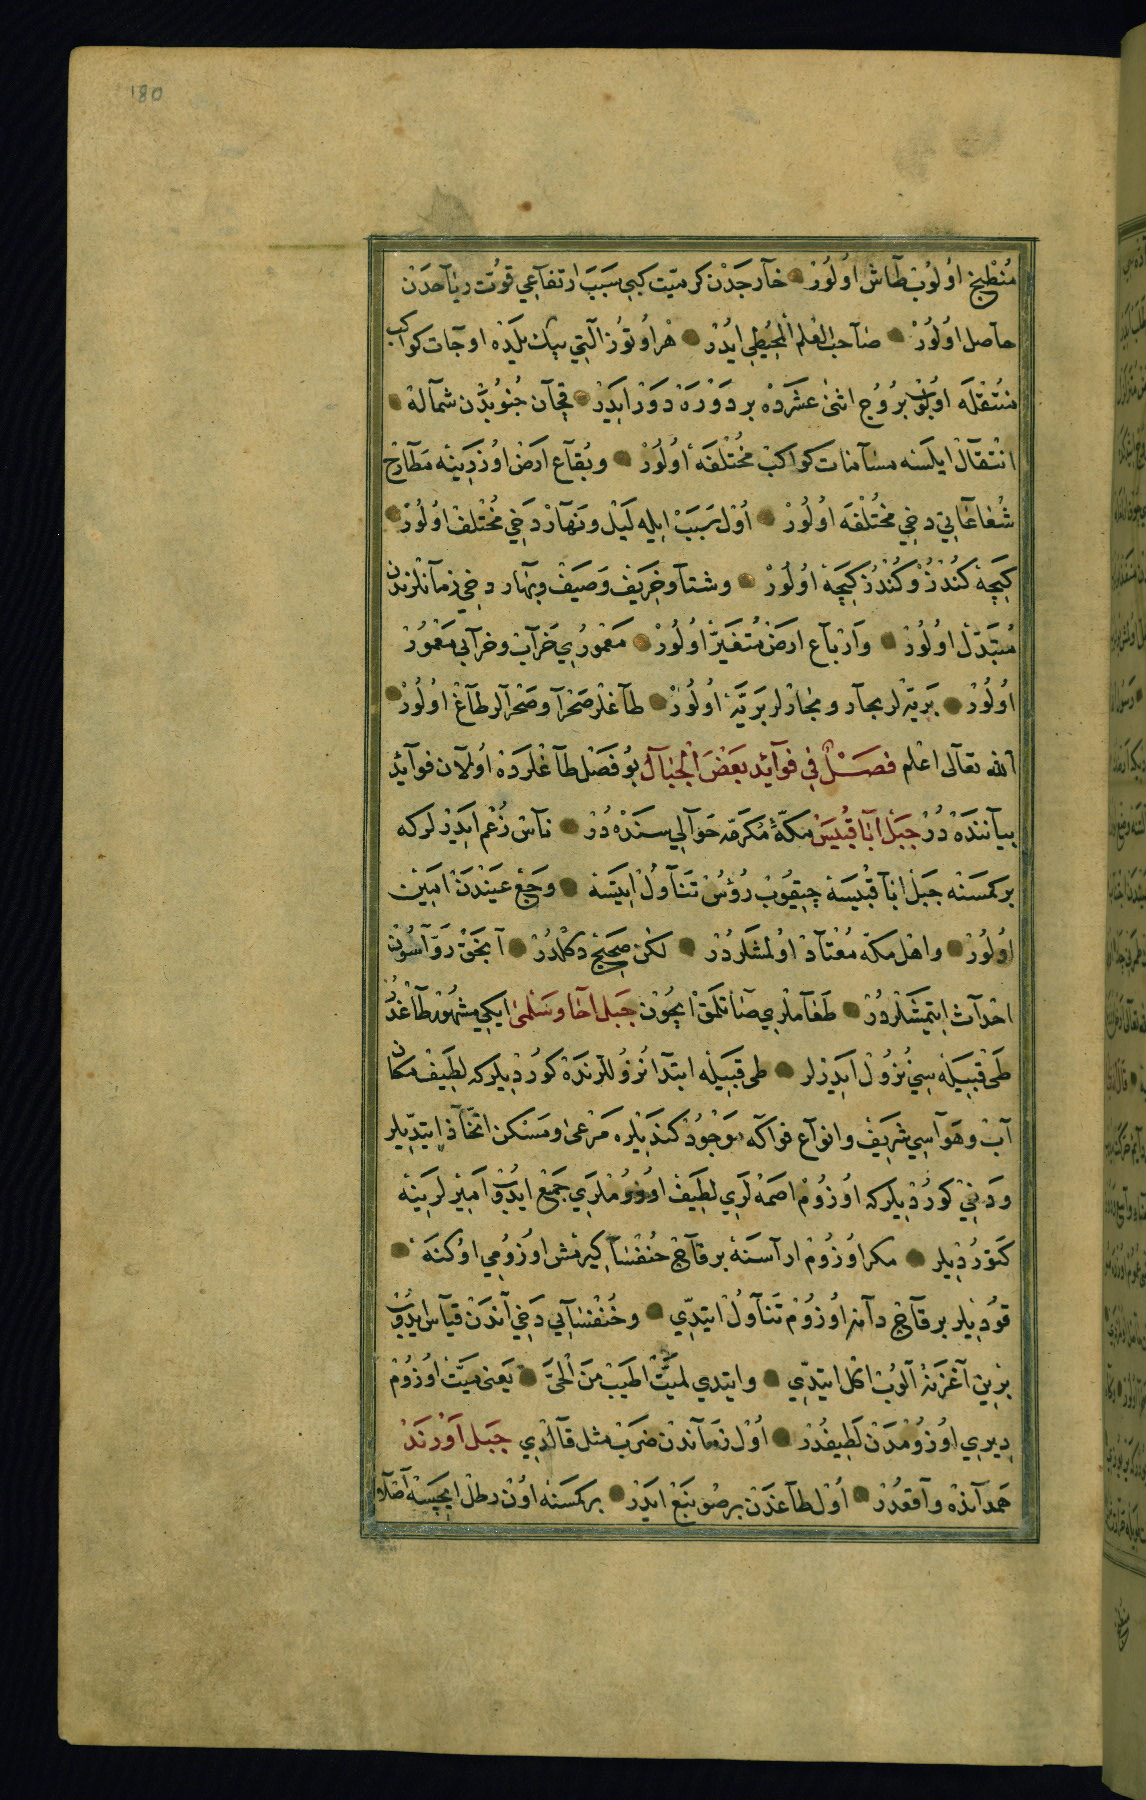 180
مُنْطَبِخ اوُلُوبْ طَآش اوُلُورْ خَآرجَدْن كرميّت كبى سَبَبَ ارتفَاعى قوّت رِيَآحدَنْ
حاصل اوُلُورْ صَاحبُ العُلمِ المحِيُطِى ايْدُرْ هَر اوُتوُز آلتى بيك يلدَه اوجَات كواكب
مُنتقلَه اوُلُوبْ بُروُج اثنى عَشَردَه بر دَوْرَه دَوْر ايدَرْ قچَآن جُنوُبدَن شمَآله
انتقَالْ ايلسَه مسَآمتات كواكبْ مخُتْلفَه اوُلُورْ وبُقآع ارَضْ اوُزرينَه مَطَآرح
شُعَاعَاتى دخى مختُلفَه اوُلُورْ اوُل سَبَبْ ايله لَيْل ونَهَآرْ دَخى مخُتلفْ اوُلُورْ
كيچَه كنُدُزْ وكُنْدُزْ كيچَه اوُلُورْ وشتَآ وخَريَفْ وَصَيفْ وبهَار دخى زمَآنلرندن
مُتبَدّلْ اوُلُورْ وَارْبآع ارَضْ مُتغَيَّرْ اوُلُورْ مَعْموُرى خَرآبْ وخرآبى مَعْموُرْ
اوُلُورْ بَريّه لر بحَار وبحَارْلر بَريَّه اوُلُورْ طآغلر صَحْرآ وصَحْرآلر طآغْ اوُلُورْ
الله تعَآلى اعْلم فصَــلٌ فى فوَآئد بعَضْ الْجبَال بُو فَصَل طآغلَردَه اوُلَان فوآئد
بيَآننده دُرْ جَبَل ابَا قُبيَسْ مَكّهٔ مُكرمّه حَوَآلى سندَه دُرْ نَآس زُعْم ايدَرْلر كه
بر كمسَنه جَبَل ابَا قُبيسَه چيقوُبْ رُؤسْ تَنَآوُل ايتسَه وَجَع عيَندَنْ امينْ
اوُلُورْ واهْل مكّه مُعْتَآدْ اوُلمشلَردُرْ لكن صَحيح دكلدُرْ آنجقْ رَوّآسونْ
احْدآثْ ايتمشلَردُرْ طَعَآملرى صَاتلمَقْ ايچوُنْ جَبَل اجَا وسَلمى ايكى مشهُورْ طآغدُر
طَىْ قبيَله سى نُزوُلْ ايدَرلر طى قبيَله ابتدا نُزوُللَرندَه كورُدْيلر كه لطيَفْ مكان
آبْ وهَوآسى شريَفْ وانوآع فواكه مَوْجوُد كندَيلره مَرْعى ومَسْكن اتّخآذ ايتديلر
وَدخىْ كورُدْيلر كه اوُزوُم اصمَه لَرى لطَيفْ اوُزوُملَرى جَمعْ ايدُوبْ اميَرلرينَه
كتوُرُدْيلر مكر اوُزوُم ارآسنَه بر قآچ خنُفْسَآ كيرمش اوُزوُمى اوُكنَه
قوُديلر بر قآچ دآنه اوُزوُمْ تَنَآوُل ايتدّى وخُنْفسَآيى دَخى آندَنْ قيآس ايدُوبْ
برينْ آغزنَه آلوُبْ اكل ايتدّى وايتدى لَميَّتٌ اطيَبْ منَ لْحَىّ يَعنى ميَّت اوُزوُمْ
دِيرى اوُزوُمْدَن لَطيفدُرْ اوُل زمَآندن ضرَبْ مثل قآلدى جَبَل اوَرْنَدْ
همدآنده وآقعدُرْ اوُل طآغدَن بر صُو نَبَعْ ايدَرْ بر كمسَنه اوُن رطْل ايچسَه اصْلا